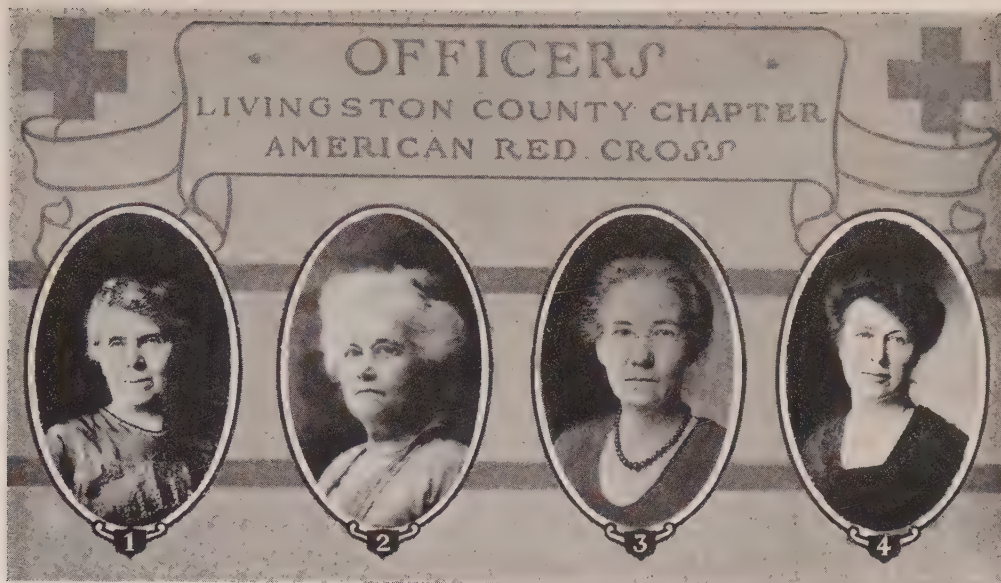 OFFICERS
LIVINGSTON COUNTY CHAPTER
AMERICAN RED CROSS
1 2 3 4